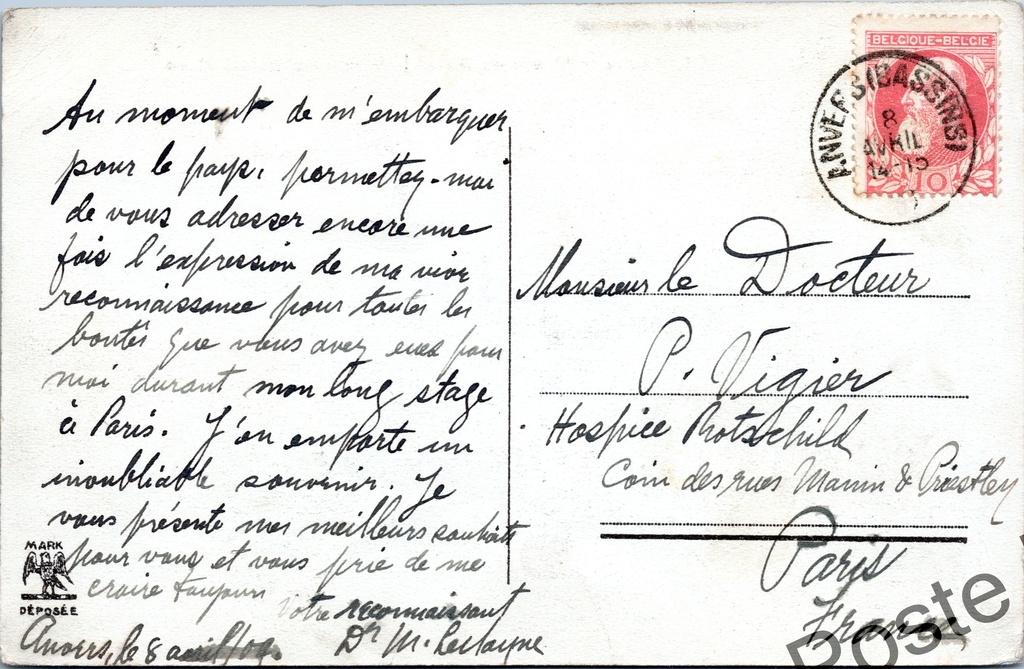 Au moment de m'embarquer
pour le pays, permettez-moi
de vous adresser encore une
fois l'expression de ma vive
reconnaissance pour toutes les
bontés que vous avez eues pour
moi durant mon long stage
à Paris. J'en emporte un
inoubliable souvenir. Je
vous présente mes meilleurs souhaits
pour vous et vous prie de me
croire toujours
votre reconnaissant
Dr M.
Anvers, le 8 avril/09.
MARK
DÉPOSÉE
BELGIQUE-BELGIË
10
ANVERS (BASSINS)
8
AVRIL
14-15
Monsieur le Docteur
P. Vigier
Hospice Rotschild
Coin des rues Manin & Priestley
Paris
France
Poste